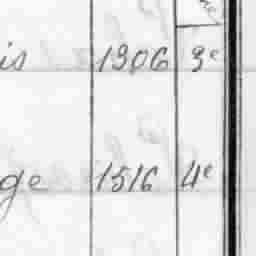 is 1906 3e
ge 1516 4e